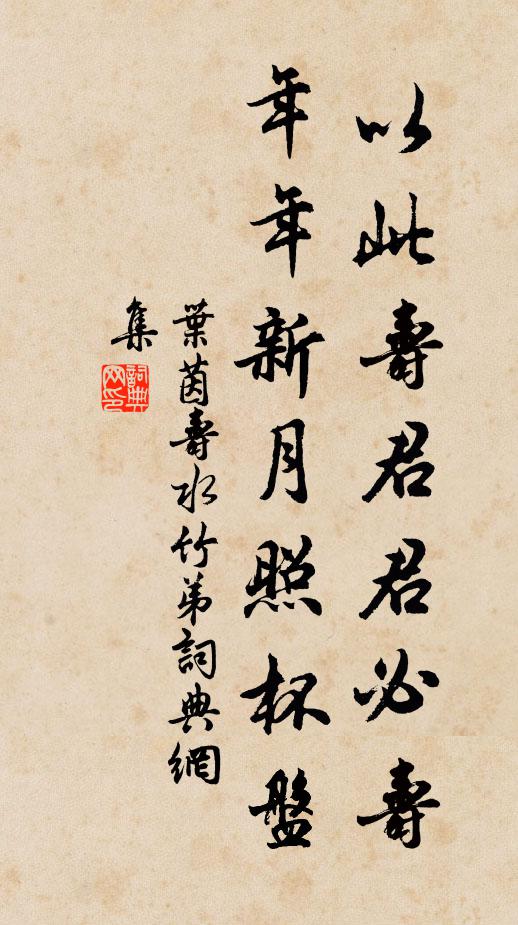 以此壽君君必壽
年年新月照杯盤
葉茵壽水竹弟詞典網
集
詞典
网印